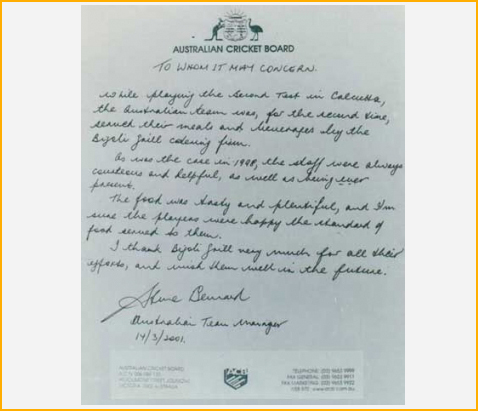 AUSTRALIAN CRICKET BOARD
TO WHOM IT MAY CONCERN.
While playing the Second Test in Calcutta,
the Australian team was, for the second time,
served their meals and beverages by the
Bijoli Grill catering firm.
As was the case in 1998, the staff were always
courteous and helpful, as well as being ever
present.
The food was tasty and plentiful, and I'm
sure the players were happy the standard of
food served to them.
I thank Bijoli Grill very much for all their
efforts, and wish them well in the future.
Steve Bernard
Australian Team Manager
14/3/2001.
AUSTRALIAN CRICKET BOARD
TELEPHONE
FAX GENERAL
FAX MARKETING